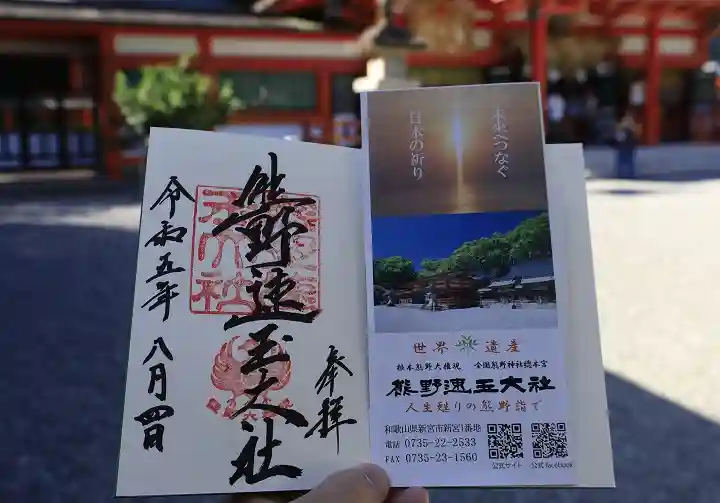 奉拝
熊野速玉大社
令和五年 八月四日
未来へつなぐ
日本の祈り
世界遺産
根本熊野大権現 全国熊野神社総本宮
熊野速玉大社
人生甦りの熊野詣で
和歌山県新宮市新宮1番地
電話 0735-22-2533
FAX 0735-23-1560
公式サイト 公式facebook